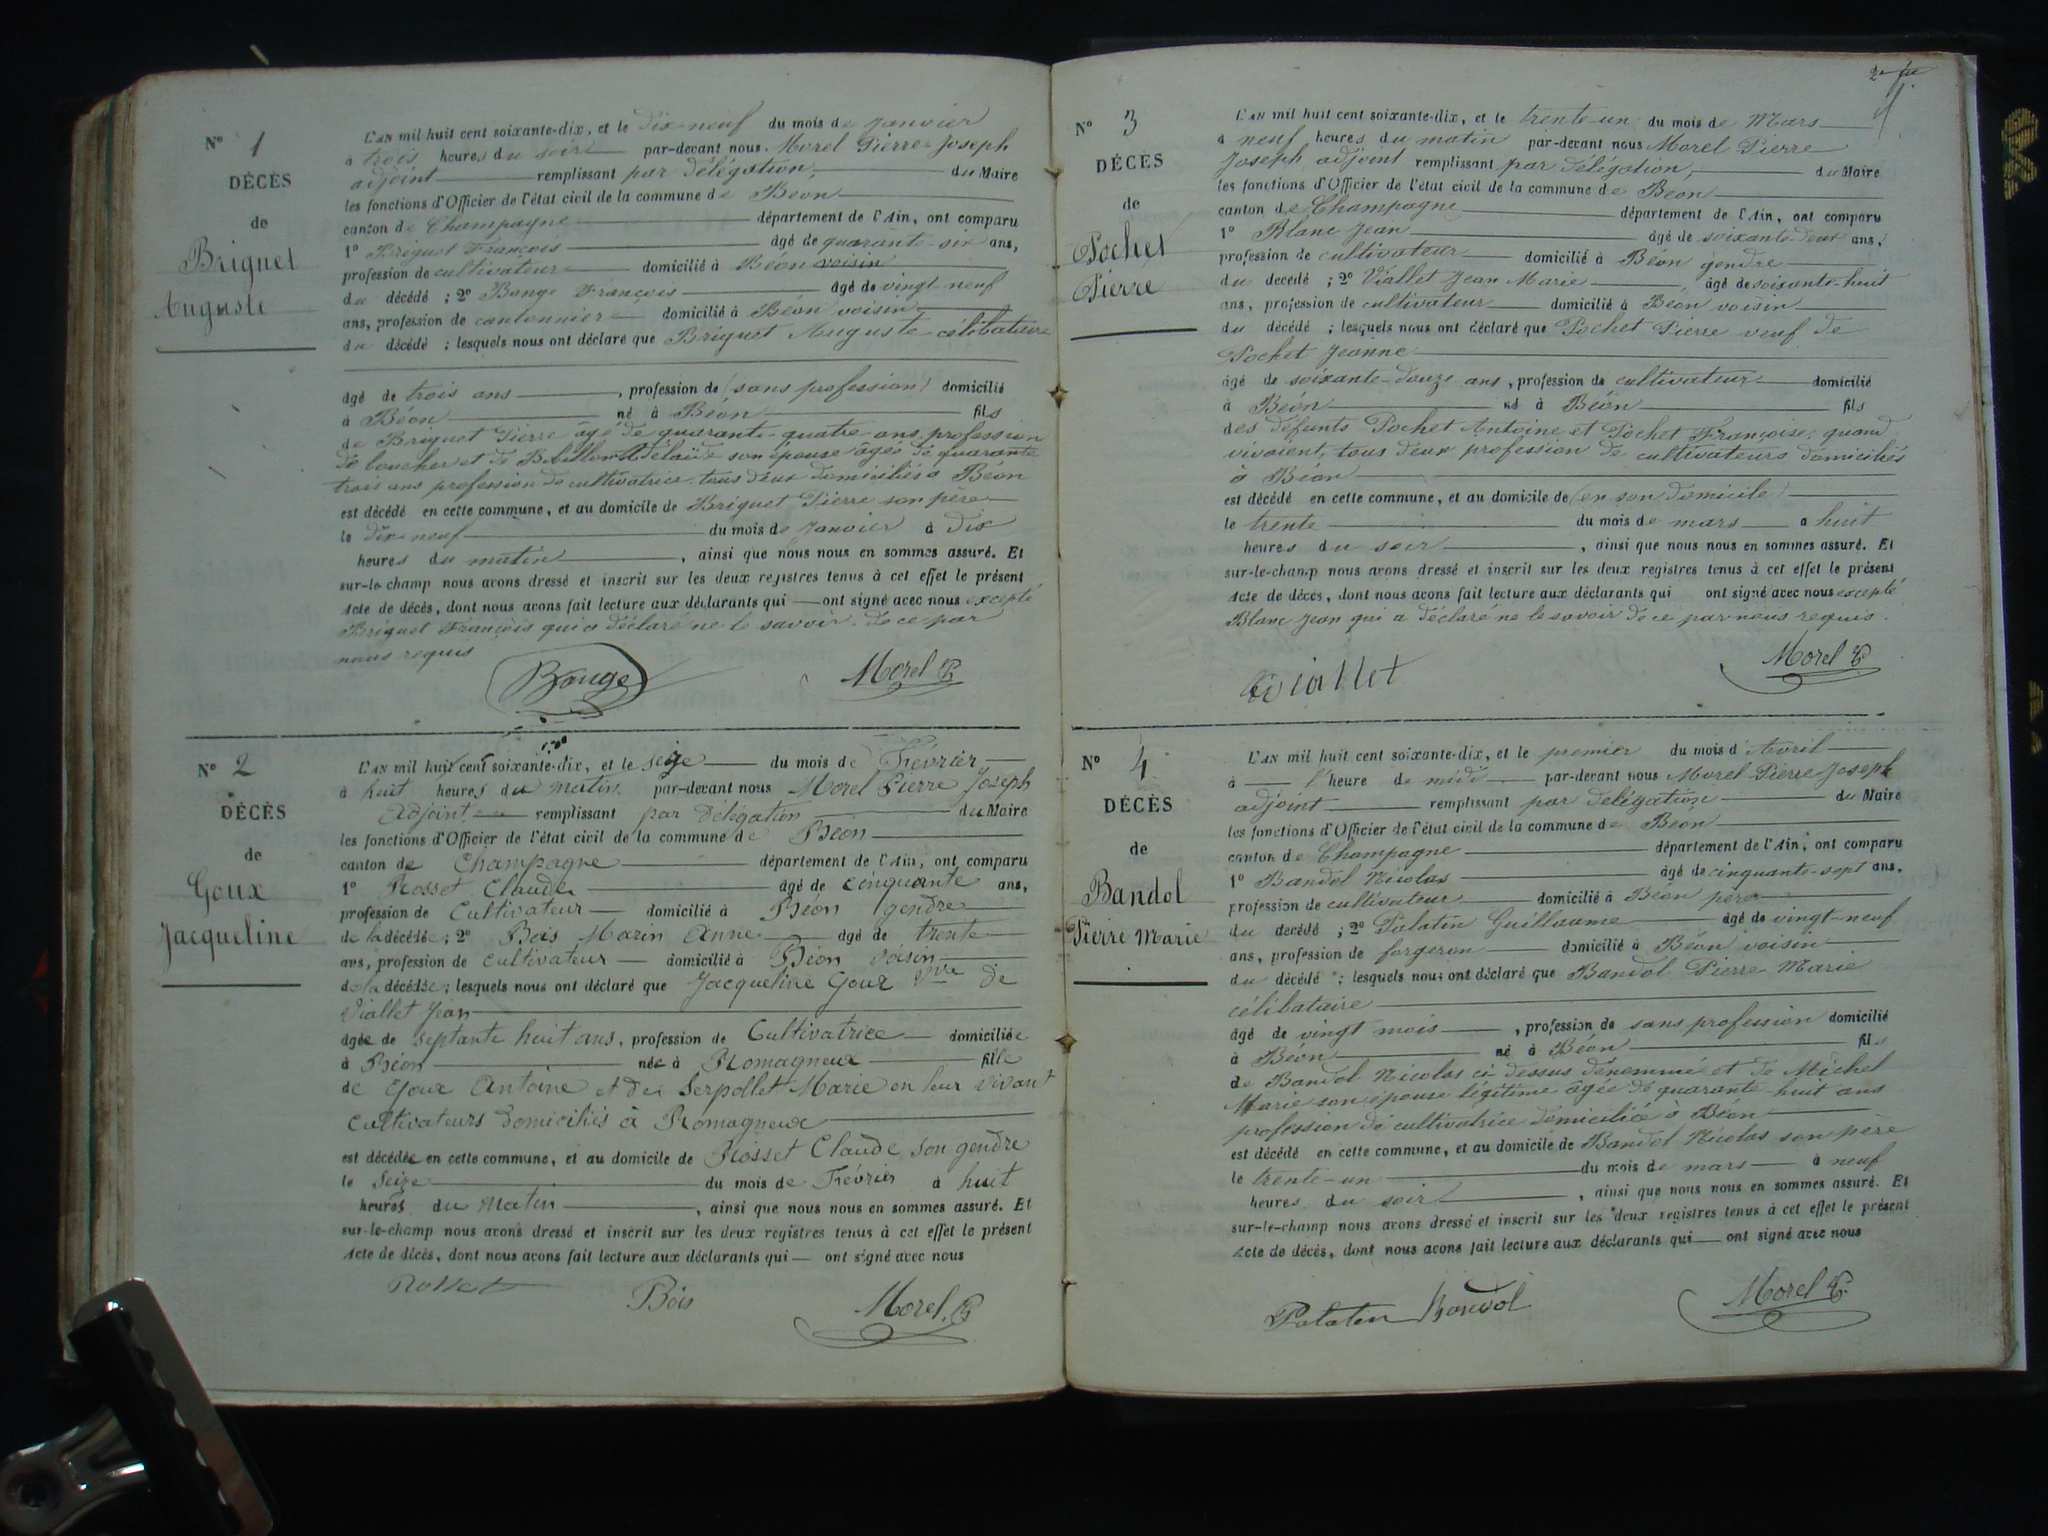 N° 1
DÉCÈS
de
Briguet
Auguste
L'AN mil huit cent soixante-dix, et le dix-neuf du mois de Janvier
à trois heures du soir par-devant nous Morel Pierre Joseph
adjoint remplissant par délégation, du Maire
les fonctions d'Officier de l'état civil de la commune de Béon
canton de Champagne département de l'Ain, ont comparu
1° Briguet François âgé de quarante-six ans,
profession de cultivateur domicilié à Béon voisin
du décédé ; 2° Bouge François âgé de vingt-neuf
ans, profession de cantonnier domicilié à Béon voisin
du décédé ; lesquels nous ont déclaré que Briguet Auguste célibataire
âgé de trois ans, profession de (sans profession) domicilié
à Béon né à Béon fils
de Briguet Pierre âgé de quarante-quatre ans profession
de boucher et de Adélaïde son épouse âgée de quarante
trois ans profession de cultivatrice tous deux domiciliés à Béon
est décédé en cette commune, et au domicile de Briguet Pierre son père
le dix-neuf du mois de Janvier à dix
heures du matin, ainsi que nous nous en sommes assuré. Et
sur-le-champ nous avons dressé et inscrit sur les deux registres tenus à cet effet le présent
acte de décès, dont nous avons fait lecture aux déclarants qui ont signé avec nous excepté
Briguet François qui a déclaré ne le savoir de ce par
nous requis
Bouge Morel P.
N° 2
DÉCÈS
de
Goux
Jacqueline
L'AN mil huit cent soixante-dix, et le seize du mois de Février
à huit heures du matin par-devant nous Morel Pierre Joseph
Adjoint remplissant par délégation du Maire
les fonctions d'Officier de l'état civil de la commune de Béon
canton de Champagne département de l'Ain, ont comparu
1° Rosset Claude âgé de cinquante ans,
profession de Cultivateur domicilié à Béon gendre
de la décédée ; 2° Bois Marin Anne âgé de trente
ans, profession de cultivateur domicilié à Béon voisin
de la décédée ; lesquels nous ont déclaré que Jacqueline Goux Vve de
Viallet Jean
âgée de septante huit ans, profession de Cultivatrice domiciliée
à Béon née à Romagneux fille
de Goux Antoine et de Serpollet Marie en leur vivant
cultivateurs domiciliés à Romagneux
est décédée en cette commune, et au domicile de Rosset Claude son gendre
le Seize du mois de Février à huit
heures du Matin, ainsi que nous nous en sommes assuré. Et
sur-le-champ nous avons dressé et inscrit sur les deux registres tenus à cet effet le présent
acte de décès, dont nous avons fait lecture aux déclarants qui ont signé avec nous
Rosset Bois Morel P.
N° 3
DÉCÈS
de
Pochet
Pierre
L'AN mil huit cent soixante-dix, et le trente-un du mois de Mars
à neuf heures du matin par-devant nous Morel Pierre
Joseph adjoint remplissant par délégation, du Maire
les fonctions d'Officier de l'état civil de la commune de Béon
canton de Champagne département de l'Ain, ont comparu
1° Blanc Jean âgé de soixante-deux ans,
profession de cultivateur domicilié à Béon gendre
du décédé ; 2° Viallet Jean Marie âgé de soixante-huit
ans, profession de cultivateur domicilié à Béon voisin
du décédé ; lesquels nous ont déclaré que Pochet Pierre veuf de
Pochet Jeanne
âgé de soixante-douze ans, profession de cultivateur domicilié
à Béon né à Béon fils
des défunts Pochet Antoine et Pochet Françoise, quand
vivaient, tous deux profession de cultivateurs domiciliés
à Béon
est décédé en cette commune, et au domicile de (en son domicile)
le trente du mois de mars à huit
heures du soir, ainsi que nous nous en sommes assuré. Et
sur-le-champ nous avons dressé et inscrit sur les deux registres tenus à cet effet le présent
acte de décès, dont nous avons fait lecture aux déclarants qui ont signé avec nous excepté
Blanc Jean qui a déclaré ne le savoir de ce par nous requis.
Viallet Morel P.
N° 4
DÉCÈS
de
Bandol
Pierre Marie
L'AN mil huit cent soixante-dix, et le premier du mois d'Avril
à l'heure de midi par-devant nous Morel Pierre Joseph
adjoint remplissant par délégation du Maire
les fonctions d'Officier de l'état civil de la commune de Béon
canton de Champagne département de l'Ain, ont comparu
1° Bandol Nicolas âgé de cinquante-sept ans,
profession de cultivateur domicilié à Béon père
du décédé ; 2° Palatin Guillaume âgé de vingt-neuf
ans, profession de forgeron domicilié à Béon voisin
du décédé ; lesquels nous ont déclaré que Bandol Pierre Marie
célibataire
âgé de vingt mois, profession de sans profession domicilié
à Béon né à Béon fils
de Bandol Nicolas ci dessus dénommé et de Michel
Marie son épouse légitime âgée de quarante-huit ans
profession de cultivatrice domiciliée à Béon
est décédé en cette commune, et au domicile de Bandol Nicolas son père
le trente-un du mois de mars à neuf
heures du soir, ainsi que nous nous en sommes assuré. Et
sur-le-champ nous avons dressé et inscrit sur les deux registres tenus à cet effet le présent
acte de décès, dont nous avons fait lecture aux déclarants qui ont signé avec nous
Palatin Bandol Morel P.